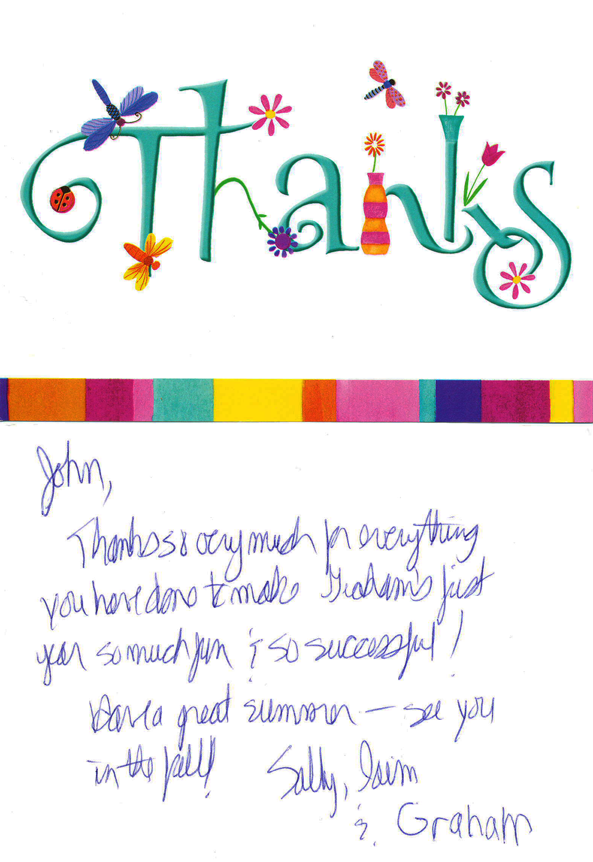 Thanks
John,
Thanks so very much for everything
you have done to make Graham's first
year so much fun & so successful!
Have a great summer — see you
in the fall!
Sally, Iaim
& Graham